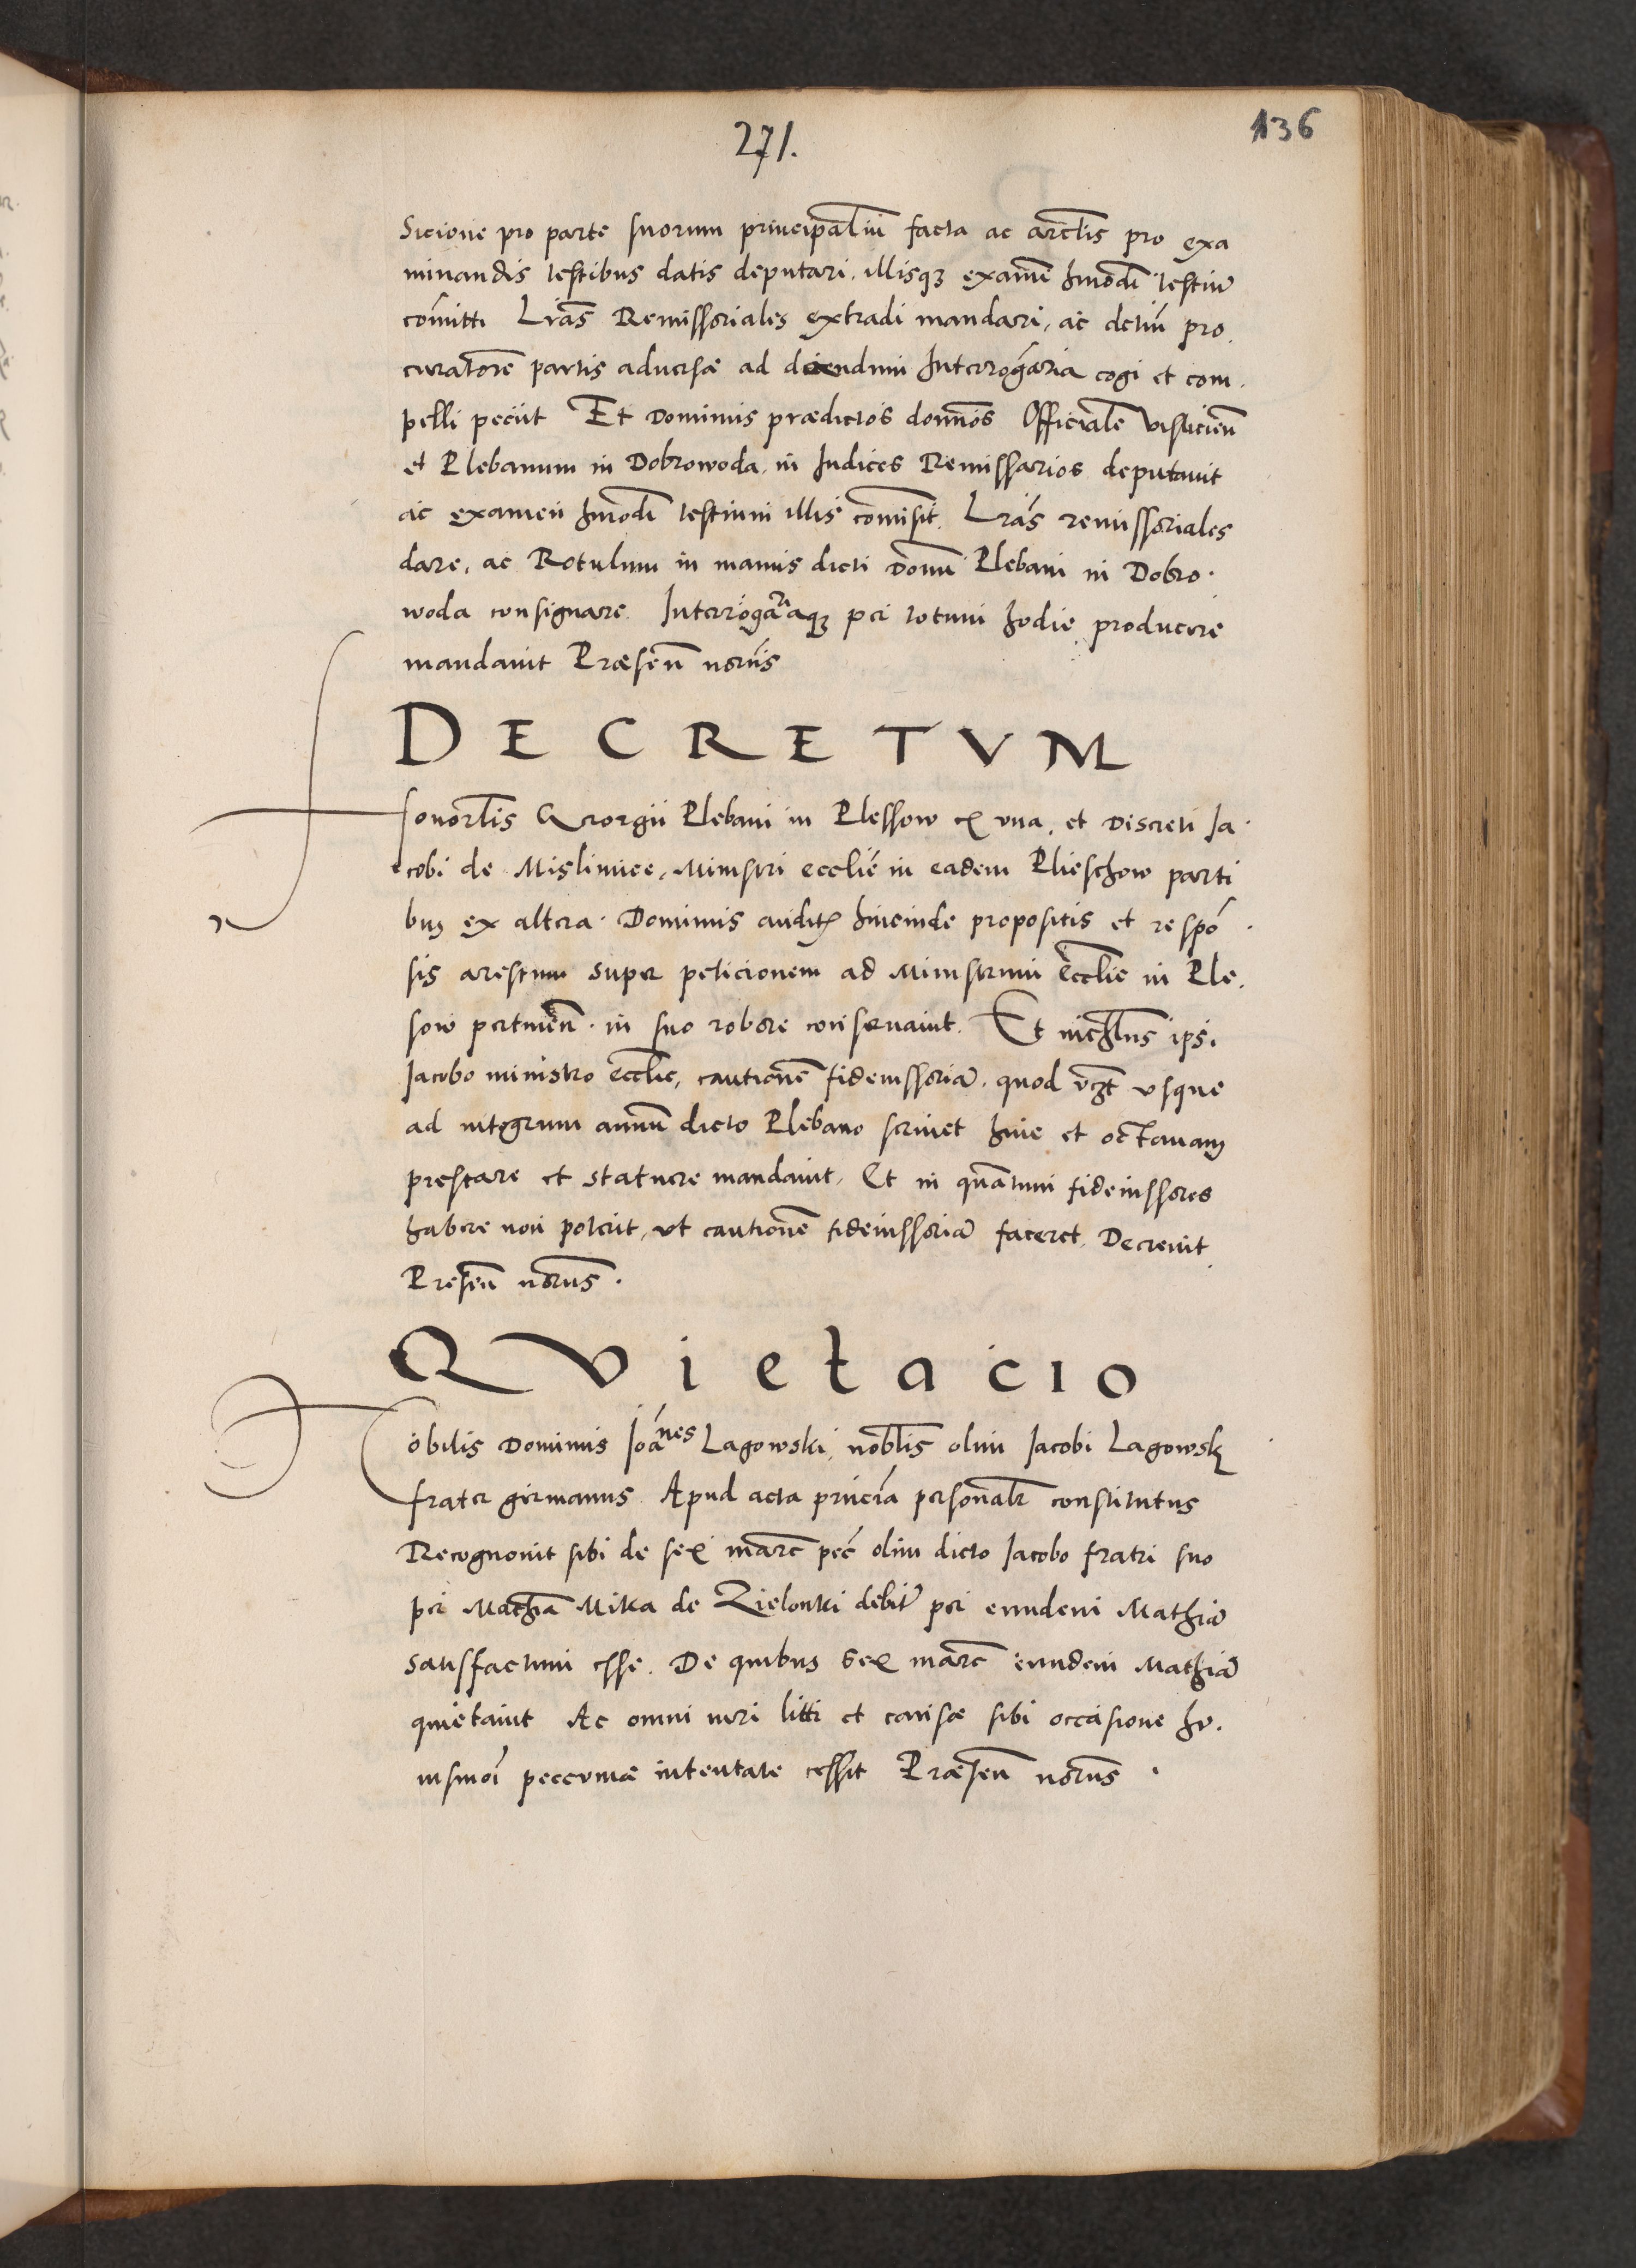 271.
136
sicione pro parte suorum principaliu facta ac articlis pro exa
minandis testibus datis deputari. illisq3 examē hmōdi testiū
cōmitti Lrās Remissoriales extradi mandari, ac dictū pro.
curatorē partis adversæ ad dicendum Interrogāria cogi et com.
pelli peciit Et Dominus prædictos domnos Officialē Visliciēn
et Plebanum in Dobrowoda, in Iudices Remissarios deputavit
ac examen hmōdi testium illis commisit. Lrās remissoriales
dare, ac Rotulum in manus dicti Domī Plebani in Dobro.
woda consignare. Interrogāriaq3 per totum hodie producere
mandavit Præsen norīs
DECRETVM
Honorlis Georgii Plebani in Plessow ex vna, et Discreti Ja.
cobi de Mislimice, Ministri ecclīe in eadem Plieschow parti
bus ex altera. Dominus auditis hincinde propositis et respō.
sis arestum super peticionem ad Ministrum ecclīe in Ple.
sow pertinēn. in suo robore conservavit. Et nichlūs ipsi
Jacobo ministro ecclīe, cautionē fideiussoriā, quod vzt vsque
ad integrum annū dicto Plebano serviet hinc et octavam
prestare et statuere mandavit, Et in quātum fideiussores
habere non poterit, vt cautionē fideiussoriā faceret, Decrevit
Presen norīus.
QVietacio
Nobilis Dominus Joānes Lagowski, noblis olim Jacobi Lagowsk
frater germanus. Apud acta prncīa personalr constitutus
Recognovit sibi de sex marc pec olim dicto Jacobo fratri suo
per Mathiā Mika de Zielonki debit per eundem Mathiā
satisfactum esse. De quibus sex marc eundem Mathiā
quietavit Ac omni iuri liti et causæ sibi occasione hu.
iusmōi peccuniæ intentate cessit Præsen norīus.